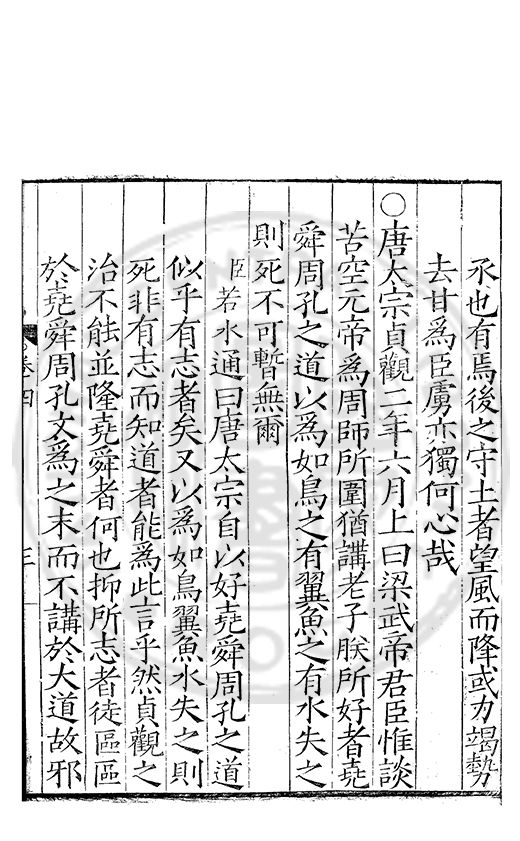 氶也有焉後之守土者望風而降或力竭勢
去甘爲臣虜亦獨何心哉
○唐太宗貞觀二年六月上曰梁武帝君臣惟談
苦空元帝爲周師所圍猶講老子朕所好者堯
舜周孔之道以爲如鳥之有翼魚之有水失之
則死不可暫無爾
臣若水通曰唐太宗自以好堯舜周孔之道
似乎有志者矣又以爲如鳥翼魚水失之則
死非有志而知道者能爲此言乎然貞觀之
治不能並隆堯舜者何也抑所志者徒區區
於堯舜周孔文爲之末而不講於大道故邪
卷四
三